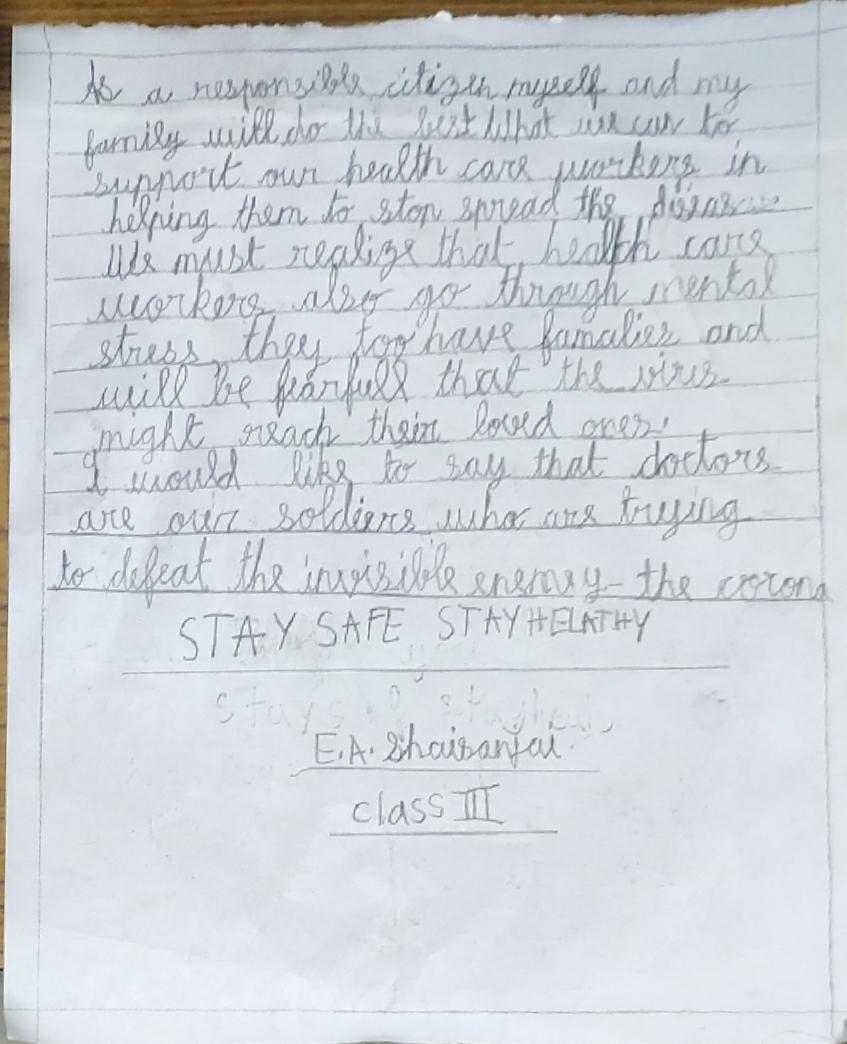 As a responsible citizen myself and my
family will do the best What we can to
support our health care workers in
helping them to stop spread the disease
We must realize that health care
workers also go through mental
stress, they too have famalies and
will be fearfull that the virus
might reach their loved ones.
I would like to say that doctors
are our soldiers who are trying
to defeat the invisible enemy- the corona
STAY SAFE STAY HELATHY
E.A. Shaisanjai
class III